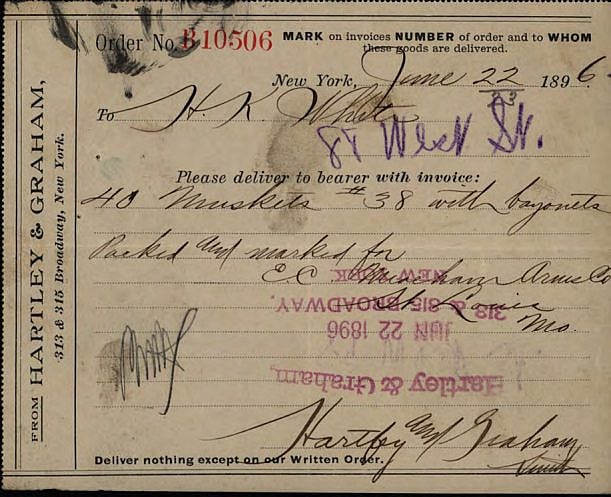 Order No. B10506
MARK on invoices NUMBER of order and to WHOM
these goods are delivered.
New York, June 22 1896
23
To H. K. White
84 West St.
Please deliver to bearer with invoice:
40 Muskets #38 with bayonets
Packed and marked for
E.C. Meacham Arms Co
St Louis
Mo.
Hartley & Graham,
JUN 22 1896
313 & 315 BROADWAY,
NEW YORK
Hartley and Graham
Deliver nothing except on our Written Order.
FROM HARTLEY & GRAHAM,
313 & 315 Broadway, New York.